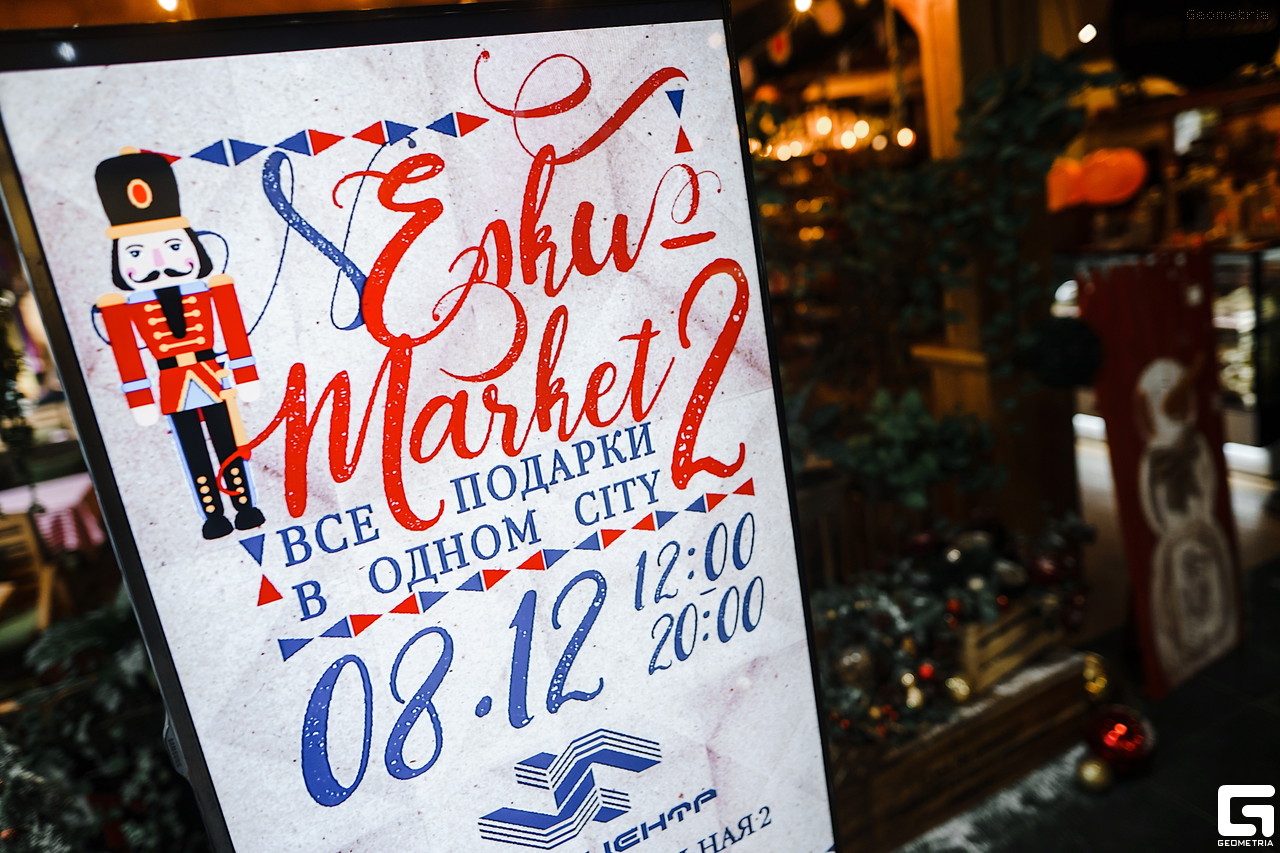 Geometria
Ёлки
Market 2
ВСЕ ПОДАРКИ
В ОДНОМ CITY
08.12
12:00
20:00
GEOMETRIA